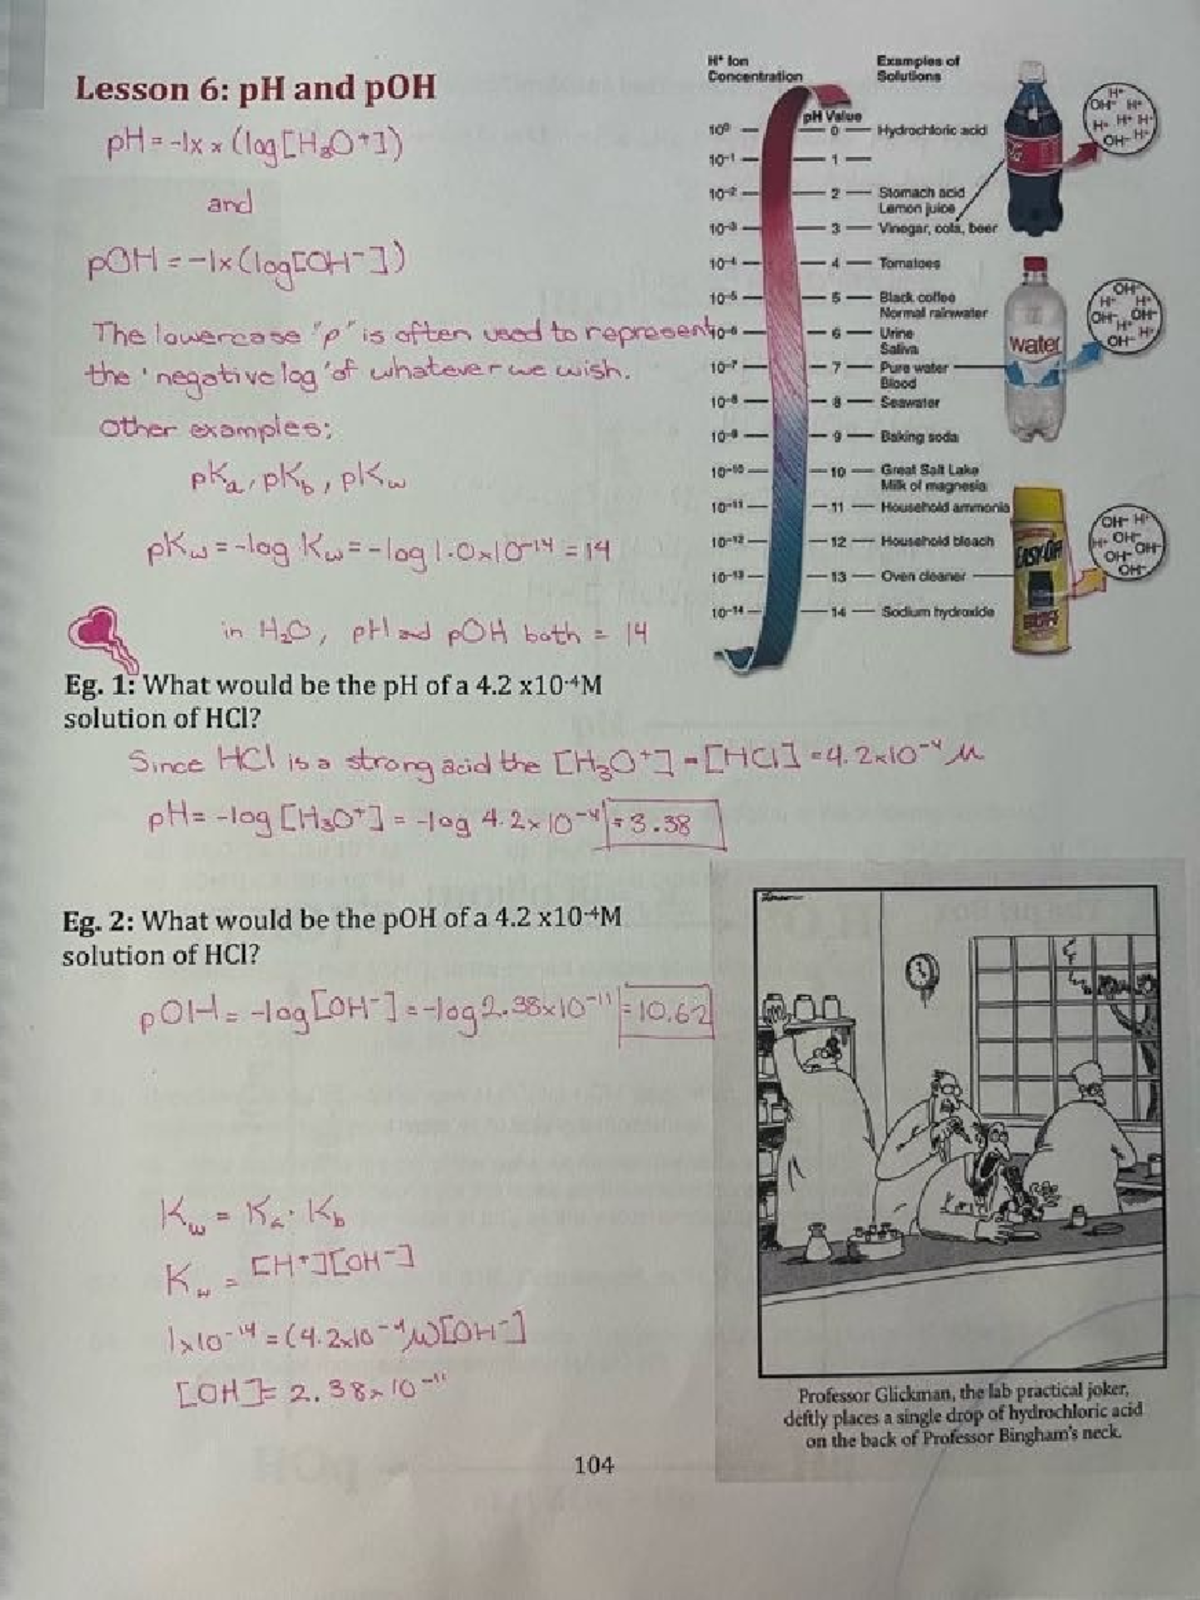 Lesson 6: pH and pOH
pH = -1x × (log[H₃O⁺])
and
pOH = -1x(log[OH⁻])
The lowercase "p" is often used to represent
the 'negative log' of whatever we wish.
Other examples:
pKa, pKb, pKw
pKw = -log Kw = -log 1.0×10⁻¹⁴ = 14
in H₂O, pH and pOH both = 14
H⁺ Ion
Concentration
pH Value
Examples of
Solutions
10⁰ 0 Hydrochloric acid
10⁻¹ 1
10⁻² 2 Stomach acid
Lemon juice
10⁻³ 3 Vinegar, cola, beer
10⁻⁴ 4 Tomatoes
10⁻⁵ 5 Black coffee
Normal rainwater
10⁻⁶ 6 Urine
Saliva
10⁻⁷ 7 Pure water
Blood
10⁻⁸ 8 Seawater
10⁻⁹ 9 Baking soda
10⁻¹⁰ 10 Great Salt Lake
Milk of magnesia
10⁻¹¹ 11 Household ammonia
10⁻¹² 12 Household bleach
10⁻¹³ 13 Oven cleaner
10⁻¹⁴ 14 Sodium hydroxide
H⁺
OH⁻ H⁺
H⁺ H⁺ H⁺
OH⁻ H⁺
water
OH⁻
H⁺ H⁺
OH⁻ OH⁻
H⁺ H⁺
OH⁻
EASY-OFF
OH⁻ H⁺
H⁺ OH⁻
OH⁻
OH⁻
OH⁻
Eg. 1: What would be the pH of a 4.2 x10⁻⁴M
solution of HCl?
Since HCl is a strong acid the [H₃O⁺] = [HCl] = 4.2×10⁻⁴ M
pH = -log [H₃O⁺] = -log 4.2×10⁻⁴ = 3.38
Eg. 2: What would be the pOH of a 4.2 x10⁻⁴M
solution of HCl?
pOH = -log [OH⁻] = -log 2.38×10⁻¹¹ = 10.62
Kw = Ka · Kb
Kw = [H⁺][OH⁻]
1×10⁻¹⁴ = (4.2×10⁻⁴ M)[OH⁻]
[OH⁻] = 2.38×10⁻¹¹
Professor Glickman, the lab practical joker,
deftly places a single drop of hydrochloric acid
on the back of Professor Bingham's neck.
104